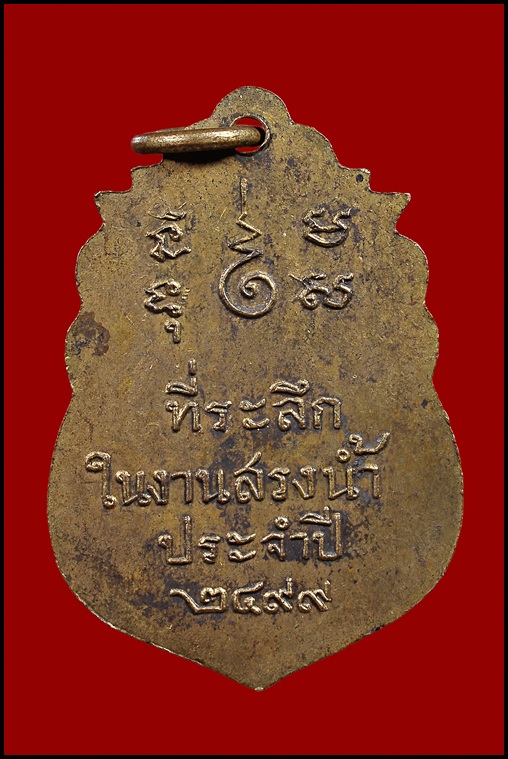 ที่ระลึก
ในงานสรงน้ำ
ประจำปี
๒๔๙๙